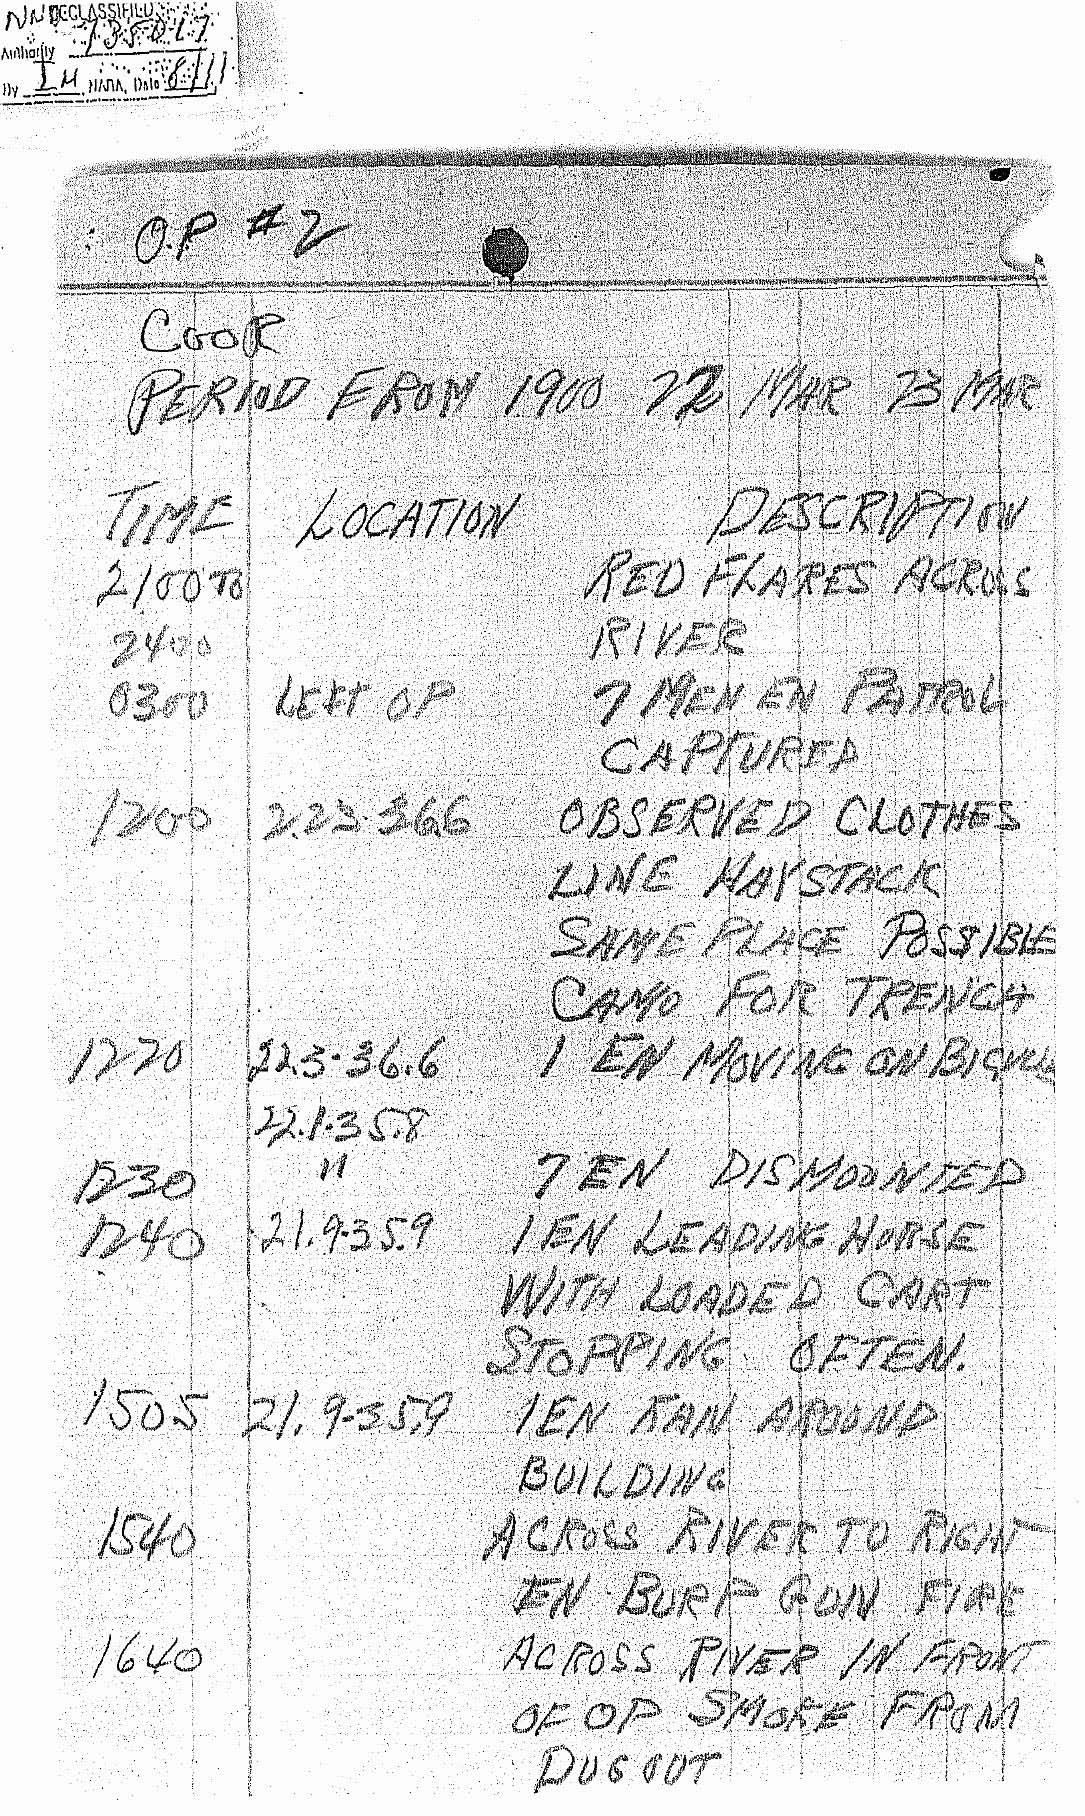 NND DECLASSIFIED
Authority 735017
By IH NARA, Date 8/11
O.P #2
COOK
PERIOD FROM 1900 22 MAR 23 MAR
TIME LOCATION DESCRIPTION
2100 TO RED FLARES ACROSS
2400 RIVER
0300 LEFT OP 7 MEN EN PATROL
CAPTURED
1200 2.23-36.6 OBSERVED CLOTHES
LINE HAYSTACK
SAME PLACE POSSIBLE
CAMO FOR TRENCH
1220 22.3-36.6 1 EN MOVING ON BICYCLE
22.1-35.8
1230 " 7 EN DISMOUNTED
1240 21.9-35.9 1 EN LEADING HORSE
WITH LOADED CART
STOPPING OFTEN.
1505 21.9-35.9 1 EN RAN AROUND
BUILDING
1540 ACROSS RIVER TO RIGHT
EN BURP GUN FIRE
1640 ACROSS RIVER IN FRONT
OF OP SMOKE FROM
DUGOUT